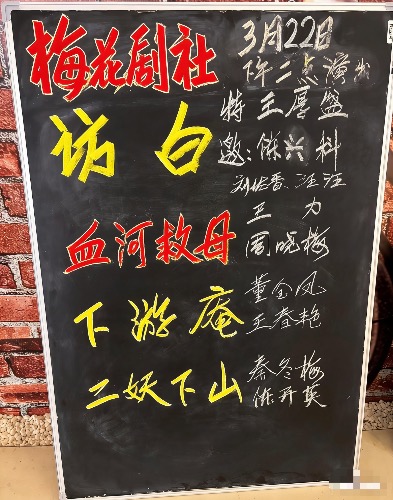 梅花剧社
3月22日
下午二点演出
访白
特 王厚盛
邀:陈兴科
刘佐香、汪洼
血河救母
王 力
周晓梅
下游庵
董金凤
王春艳
二妖下山
秦冬梅
陈开英